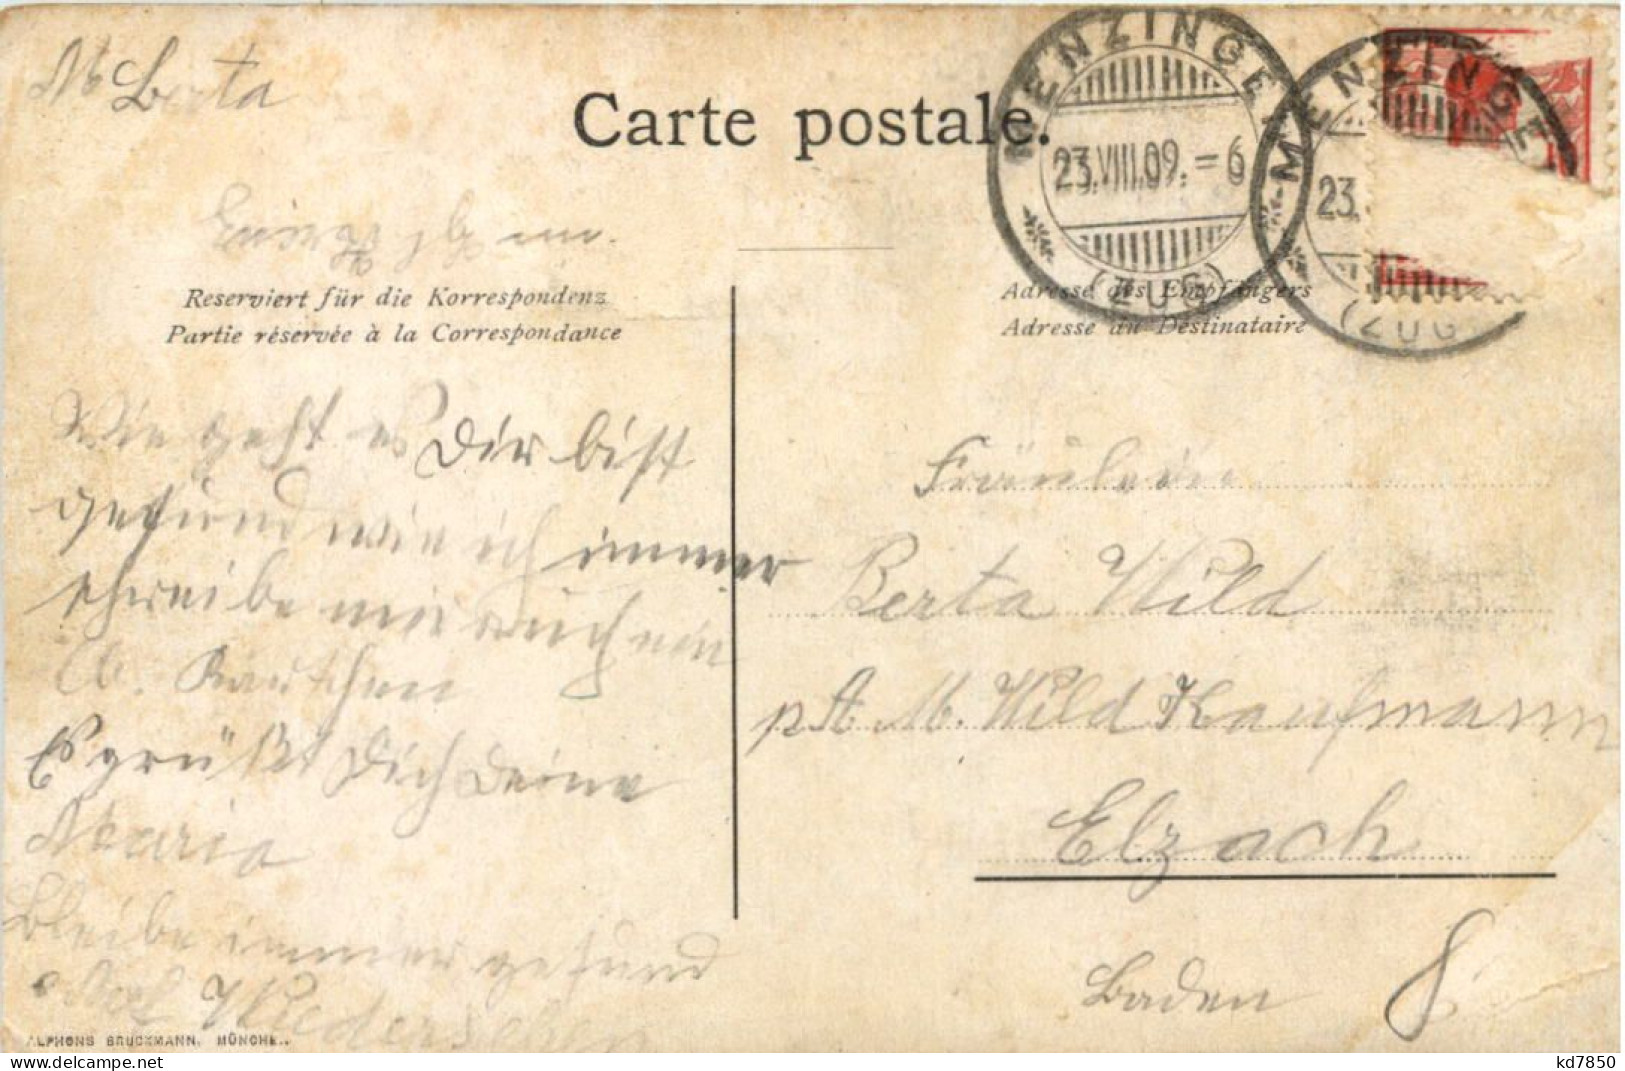 M Berta
Carte postale.
MENZINGEN
23.VIII.09.=6
(ZUG)
MENZINGE
23.
(ZUG
Reserviert für die Korrespondenz
Partie réservée à la Correspondance
Adresse des Empfängers
Adresse du Destinataire
Wie geht es Dir bist
gesund wie ich immer
schreibe mir auch ein
Es grüßt Dich Deine
Maria
Bleibe immer gesund
Auf Wiedersehen
Fräulein
Berta Wild
M. Wild Kaufmann
Elzach
Baden
ALPHONS BRUCKMANN, MÜNCHE..
kd7850